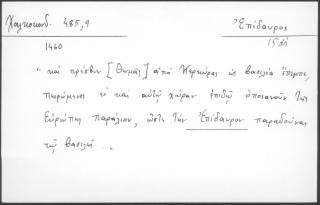 Χαλκοκονδ. 485,9
Ἐπίδαυρος
1460
" καὶ πρέσβυν [Θωμᾶς] ἀπὸ Κερκύρας ὡς βασιλέα ἔπεμπε,
πειρώμενος εἰ καὶ αὐτῷ χώραν ἐπιδῷ ὁποιανοῦν τῆς
Εὐρώπης παράλιον, ὥστε τὴν Ἐπίδαυρον παραδοῦναι
τῷ βασιλεῖ . "